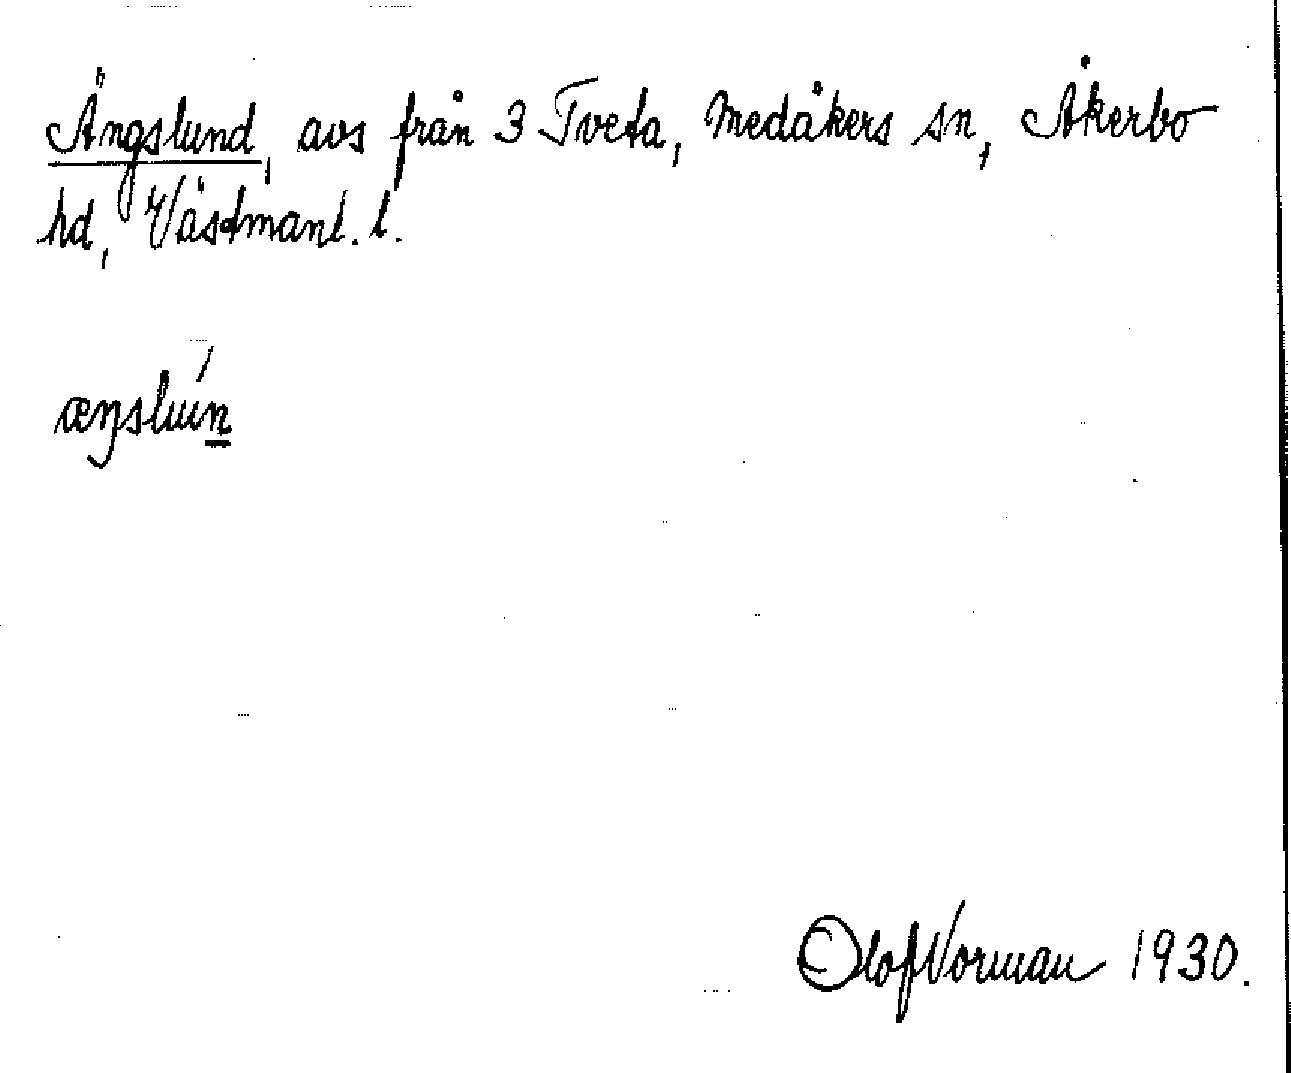 Ängslund, avs från 3 Tveta, Medåkers sn, Åkerbo
hd, Västmanl. l.
æŋsluń
Olof Norman 1930.